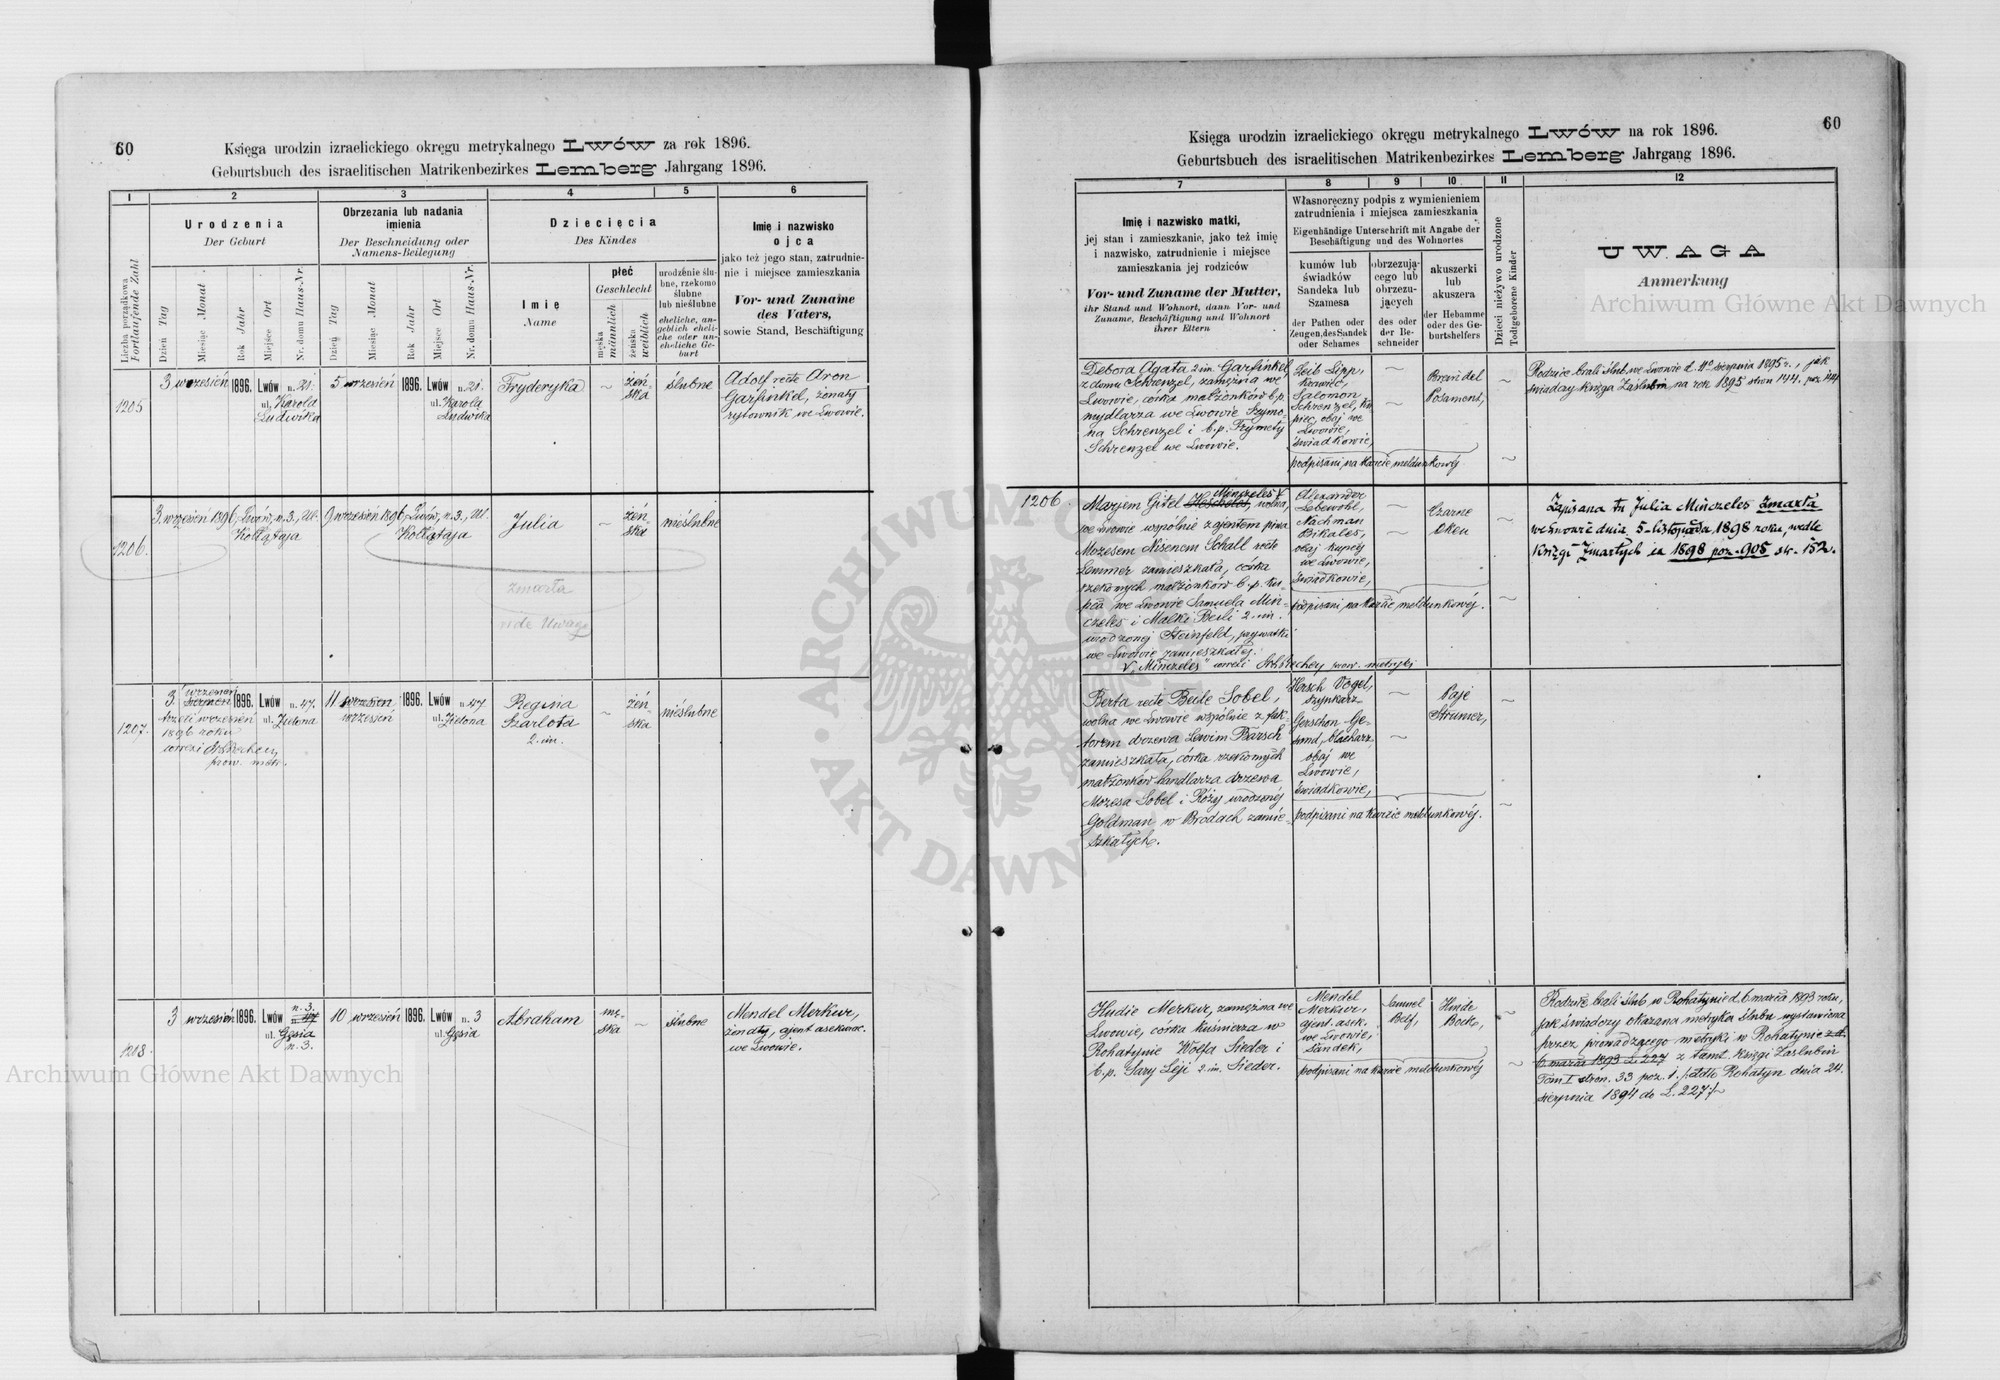 60
Księga urodzin izraelickiego okręgu metrykalnego Lwów za rok 1896.
Geburtsbuch des israelitischen Matrikenbezirkes Lemberg Jahrgang 1896.
1
2
3
4
5
6
Liczba porządkowa
Fortlaufende Zahl
Urodzenia
Der Geburt
Dzień Tag
Miesiąc Monat
Rok Jahr
Miejsce Ort
Nr. domu Haus-Nr.
Obrzezania lub nadania
imienia
Der Beschneidung oder
Namens-Beilegung
Dzień Tag
Miesiąc Monat
Rok Jahr
Miejsce Ort
Nr. domu Haus-Nr.
Dziecięcia
Des Kindes
Imię
Name
płeć
Geschlecht
męska
männlich
żeńska
weiblich
urodzenie ślu-
bne, rzekomo
ślubne
lub nieślubne
eheliche, an-
geblich eheli-
che oder un-
eheliche Ge-
burt
Imię i nazwisko
ojca
jako też jego stan, zatrudnie-
nie i miejsce zamieszkania
Vor- und Zuname
des Vaters,
sowie Stand, Beschäftigung
1205
3 wrzesień 1896. Lwów n. 21.
ul. Karola
Ludwika
5 wrzesień 1896. Lwów n. 21.
ul. Karola
Ludwika
Fryderyka
~
żeń-
ska
ślubne
Adolf recte Aron
Garfinkel, żonaty
rytownik we Lwowie.
1206.
3 wrzesień 1896, Lwów, n. 3, ul.
Kołłątaja
9 wrzesień 1896, Lwów, n. 3, ul.
Kołłątaja
Julia
~
żeń-
ska
nieślubne
zmarła
vide Uwaga
1207.
3. wrzesień 1896. Lwów n. 47.
sierpień ul. Zielona
trzeci wrzesień
1896 roku
prow. metr.
11 wrzesień 1896. Lwów n. 47.
wrzesień ul. Zielona
Regina
Szarlota
2. im.
~
żeń-
ska
nieślubne
1208.
3 wrzesień 1896. Lwów n. 3.
ul. Gęsia
n. 3.
10 wrzesień 1896. Lwów n. 3
ul. Gęsia
Abraham
mę-
ska
~
ślubne
Mendel Merkur,
żonaty, ajent asekurac.
we Lwowie.
60
Księga urodzin izraelickiego okręgu metrykalnego Lwów na rok 1896.
Geburtsbuch des israelitischen Matrikenbezirkes Lemberg Jahrgang 1896.
7
8
9
10
11
12
Imię i nazwisko matki,
jej stan i zamieszkanie, jako też imię
i nazwisko, zatrudnienie i miejsce
zamieszkania jej rodziców
Vor- und Zuname der Mutter,
ihr Stand und Wohnort, dann Vor- und
Zuname, Beschäftigung und Wohnort
ihrer Eltern
Własnoręczny podpis z wymienieniem
zatrudnienia i miejsca zamieszkania
Eigenhändige Unterschrift mit Angabe der
Beschäftigung und des Wohnortes
kumów lub
świadków
Sandeka lub
Szamesa
der Pathen oder
Zeugen, des Sandek
oder Schames
obrzezują-
cego lub
obrzezu-
jących
des oder
der Be-
schneider
akuszerki
lub
akuszera
der Hebamme
oder des Ge-
burtshelfers
Dzieci nieżywo urodzone
Todtgeborene Kinder
UWAGA
Anmerkung
Debora Agata 2 im. Garfinkel,
z domu Schrenzel, zamężna we
Lwowie, córka małżonków b. p.
mydlarza we Lwowie Szymo-
na Schrenzel i b. p. Frymety
Schrenzel we Lwowie.
Leib Lipp,
krawiec,
Salomon
Schrenzel, ku-
piec, obaj we
Lwowie,
świadkowie,
podpisani na karcie meldunkowéj
~
~
Breindel
Posament,
~
~
Rodzice brali ślub we Lwowie d. 11 sierpnia 1895 r., jak
świadczy księga Zaślubin na rok 1895 stron 144. poz. 144
1206
Minczeles V
Marjem Gitel Heschels, wolna,
we Lwowie wspólnie z ajentem piwa
Mozesem Nisenem Schall recte
Lemmer zamieszkała, córka
rzekomych małżonków b. p. ku-
pca we Lwowie Samuela Min-
czeles i Malki Beili 2. im.
urodzonej Steinfeld, prywatki
we Lwowie zamieszkałej.
V. „Minczeles" prow. metryki
Alexander
Lebewohl,
Nachman
Bikales,
obaj kupcy
we Lwowie,
świadkowie,
podpisani na karcie meldunkowéj.
~
~
Czarne
Oken
~
~
Zapisana tu Julia Minczeles zmarła
we Lwowie dnia 5-listopada 1898 roku, wedle
Księgi Zmarłych za 1898 poz. 905 str. 152.
Berta recte Beile Sobel,
wolna we Lwowie wspólnie z fak-
torem drzewa Lewim Barsch
zamieszkała, córka rzekomych
małżonków handlarza drzewa
Mozesa Sobel i Róży urodzonéj
Goldman w Brodach zamie-
szkałych.
Hersch Vogel,
szynkarz
Gerschon Ge-
sund, blacharz,
obaj we
Lwowie,
świadkowie,
podpisani na karcie meldunkowéj.
~
~
Paje
Strumer,
~
~
Hudie Merkur, zamężna we
Lwowie, córka kuśnierza w
Rohatynie Wolfa Sieder i
b. p. Sary Leji 2. im. Sieder.
Mendel
Merkur,
ajent. asek.
we Lwowie,
Sandek,
podpisani na karcie meldunkowéj
Samuel
Self,
Hinde
Bock,
~
~
Rodzice brali ślub w Rohatynie d. 6 marca 1893 roku,
jak świadczy okazana metryka ślubu wystawiona
przez prowadzącego metryki w Rohatynie z d.
6 marca 1893 L. 227 z tamt. Księgi Zaślubin
Tom I stron. 33 poz. 1. pddto Rohatyn dnia 24.
sierpnia 1894 do L. 227.
Archiwum Główne Akt Dawnych
Archiwum Główne Akt Dawnych
ARCHIWUM GŁÓWNE AKT DAWNYCH